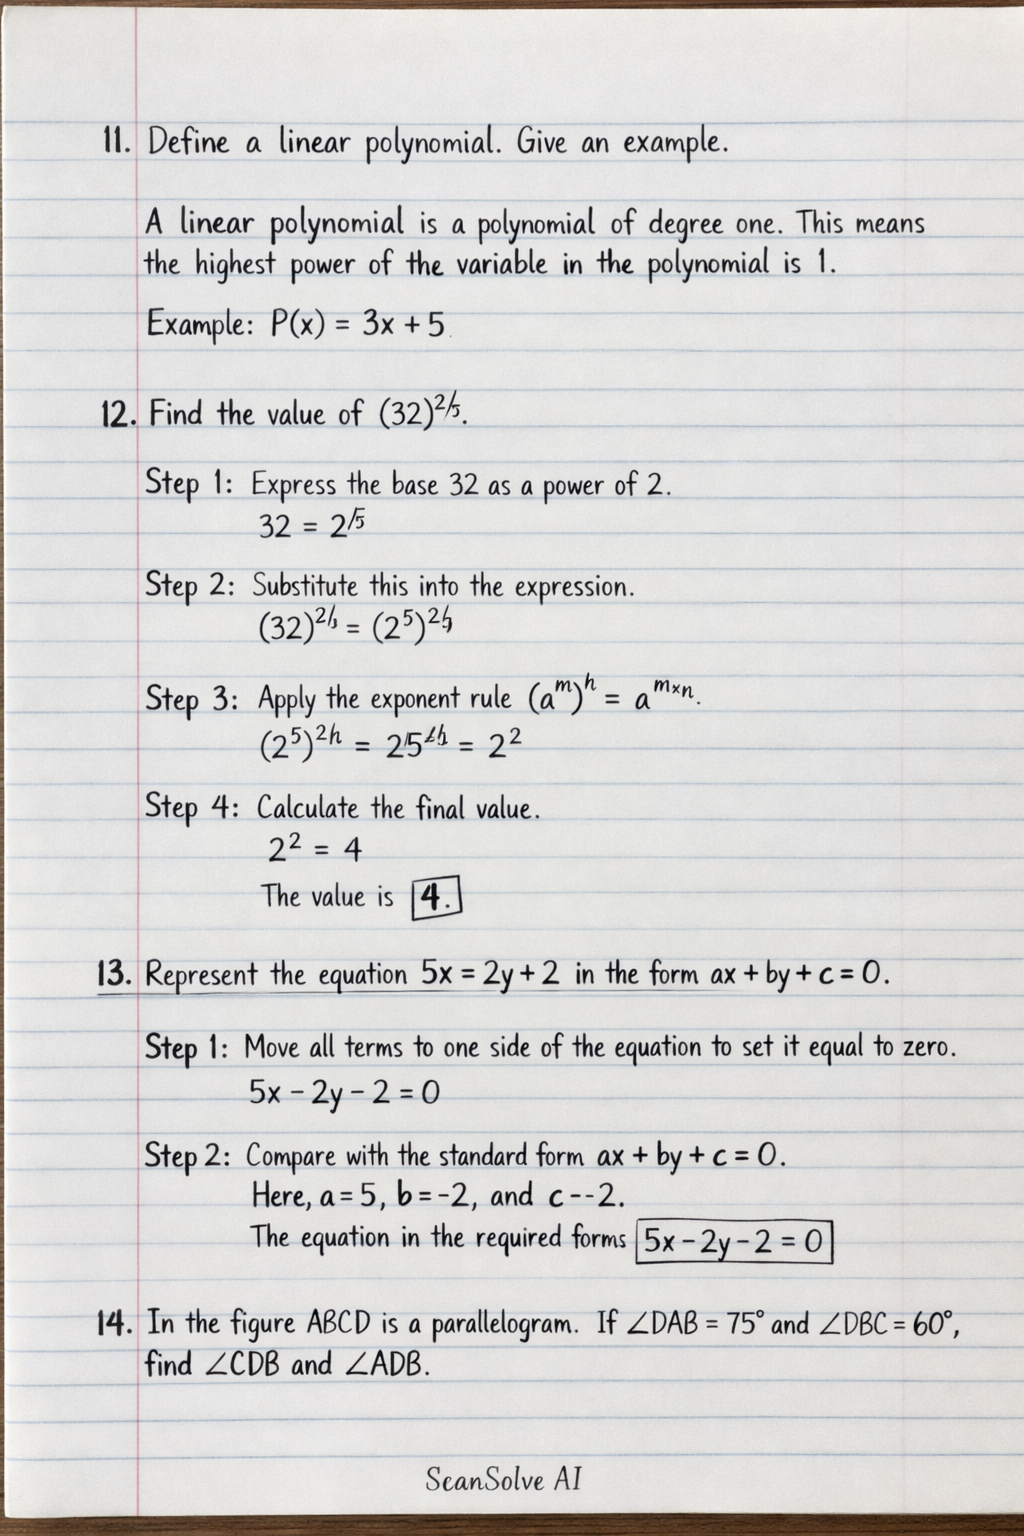 11. Define a linear polynomial. Give an example.
A linear polynomial is a polynomial of degree one. This means
the highest power of the variable in the polynomial is 1.
Example: P(x) = 3x + 5
12. Find the value of (32)^2/5.
Step 1: Express the base 32 as a power of 2.
32 = 2^/5
Step 2: Substitute this into the expression.
(32)^2/ = (2^5)^2/
Step 3: Apply the exponent rule (a^m)^h = a^m×n.
(2^5)^2h = 25 = 2^2
Step 4: Calculate the final value.
2^2 = 4
The value is 4.
13. Represent the equation 5x = 2y + 2 in the form ax + by + c = 0.
Step 1: Move all terms to one side of the equation to set it equal to zero.
5x - 2y - 2 = 0
Step 2: Compare with the standard form ax + by + c = 0.
Here, a = 5, b = -2, and c--2.
The equation in the required forms 5x - 2y - 2 = 0
14. In the figure ABCD is a parallelogram. If ∠DAB = 75° and ∠DBC = 60°,
find ∠CDB and ∠ADB.
ScanSolve AI